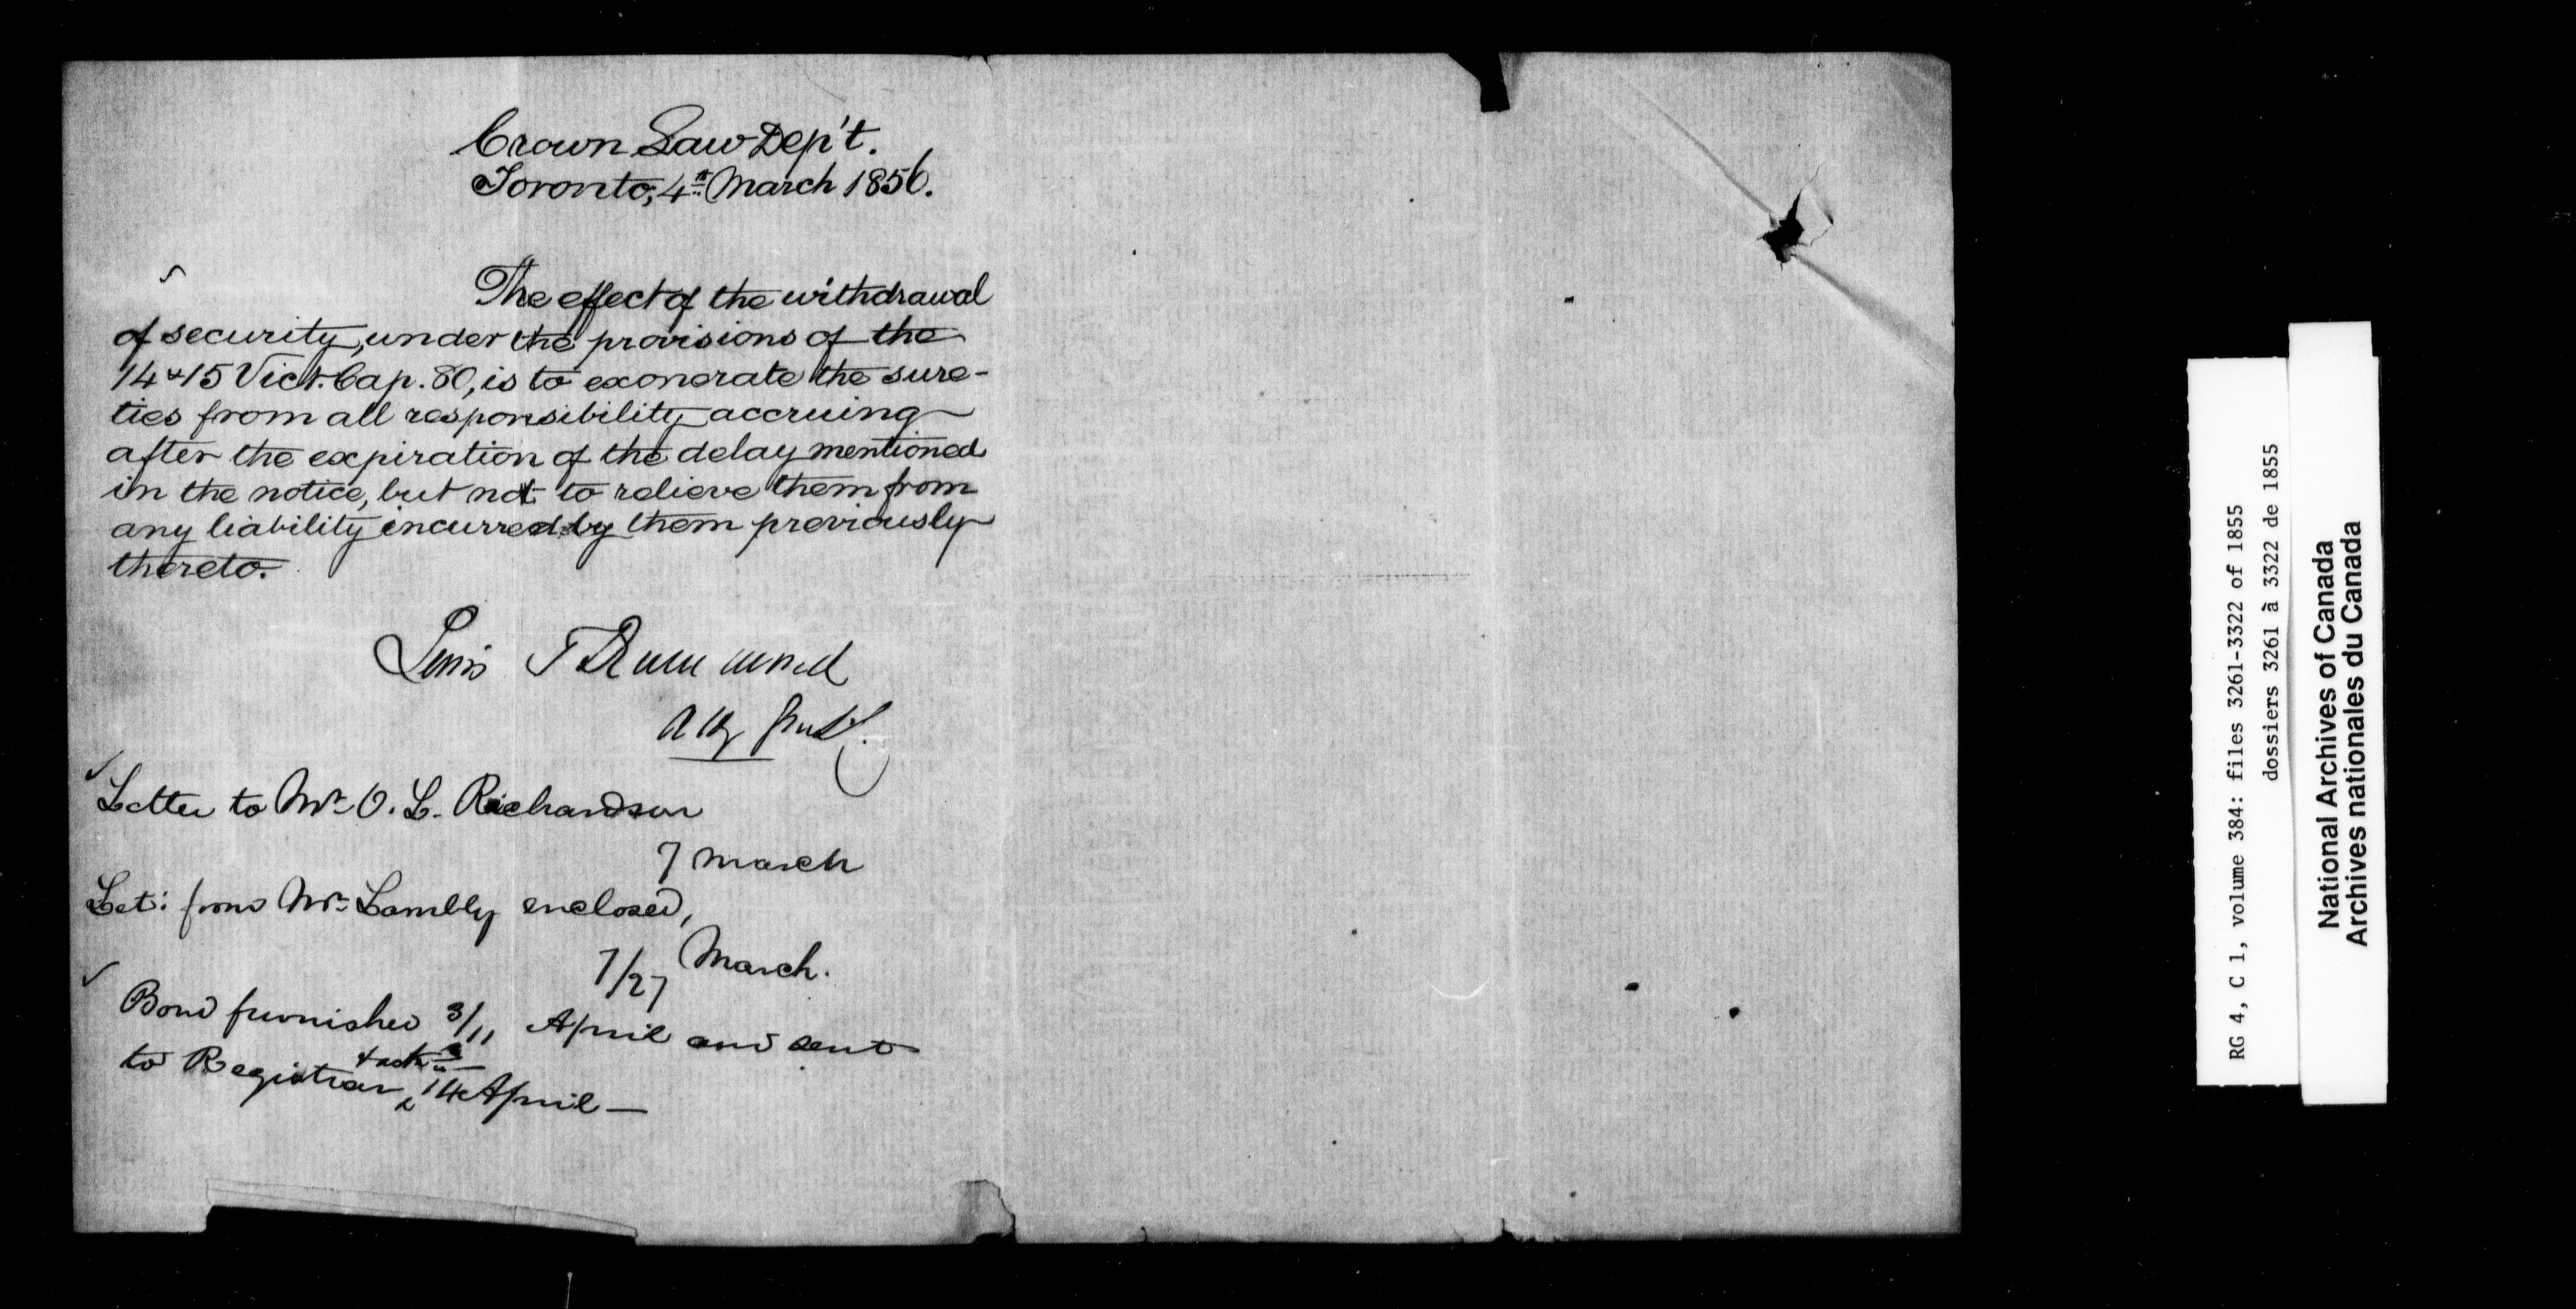 Crown Law Dep't.
Toronto, 4th March 1856.
The effect of the withdrawal
of security, under the provisions of the
14 & 15 Vict. Cap. 80, is to exonerate the sure-
ties from all responsibility accruing
after the expiration of the delay mentioned
in the notice, but not to relieve them from
any liability incurred by them previously
thereto.
Lewis T Drummond
Atty Genl.
Letter to Mr. O. L. Richardson
7 March
Let: from Mr. Lambly enclosed,
7/27 March.
Bond furnished 3/11 April and sent
to Registrar 14 April —
RG 4, C 1, volume 384: files 3261-3322 of 1855
dossiers 3261 à 3322 de 1855
National Archives of Canada
Archives nationales du Canada